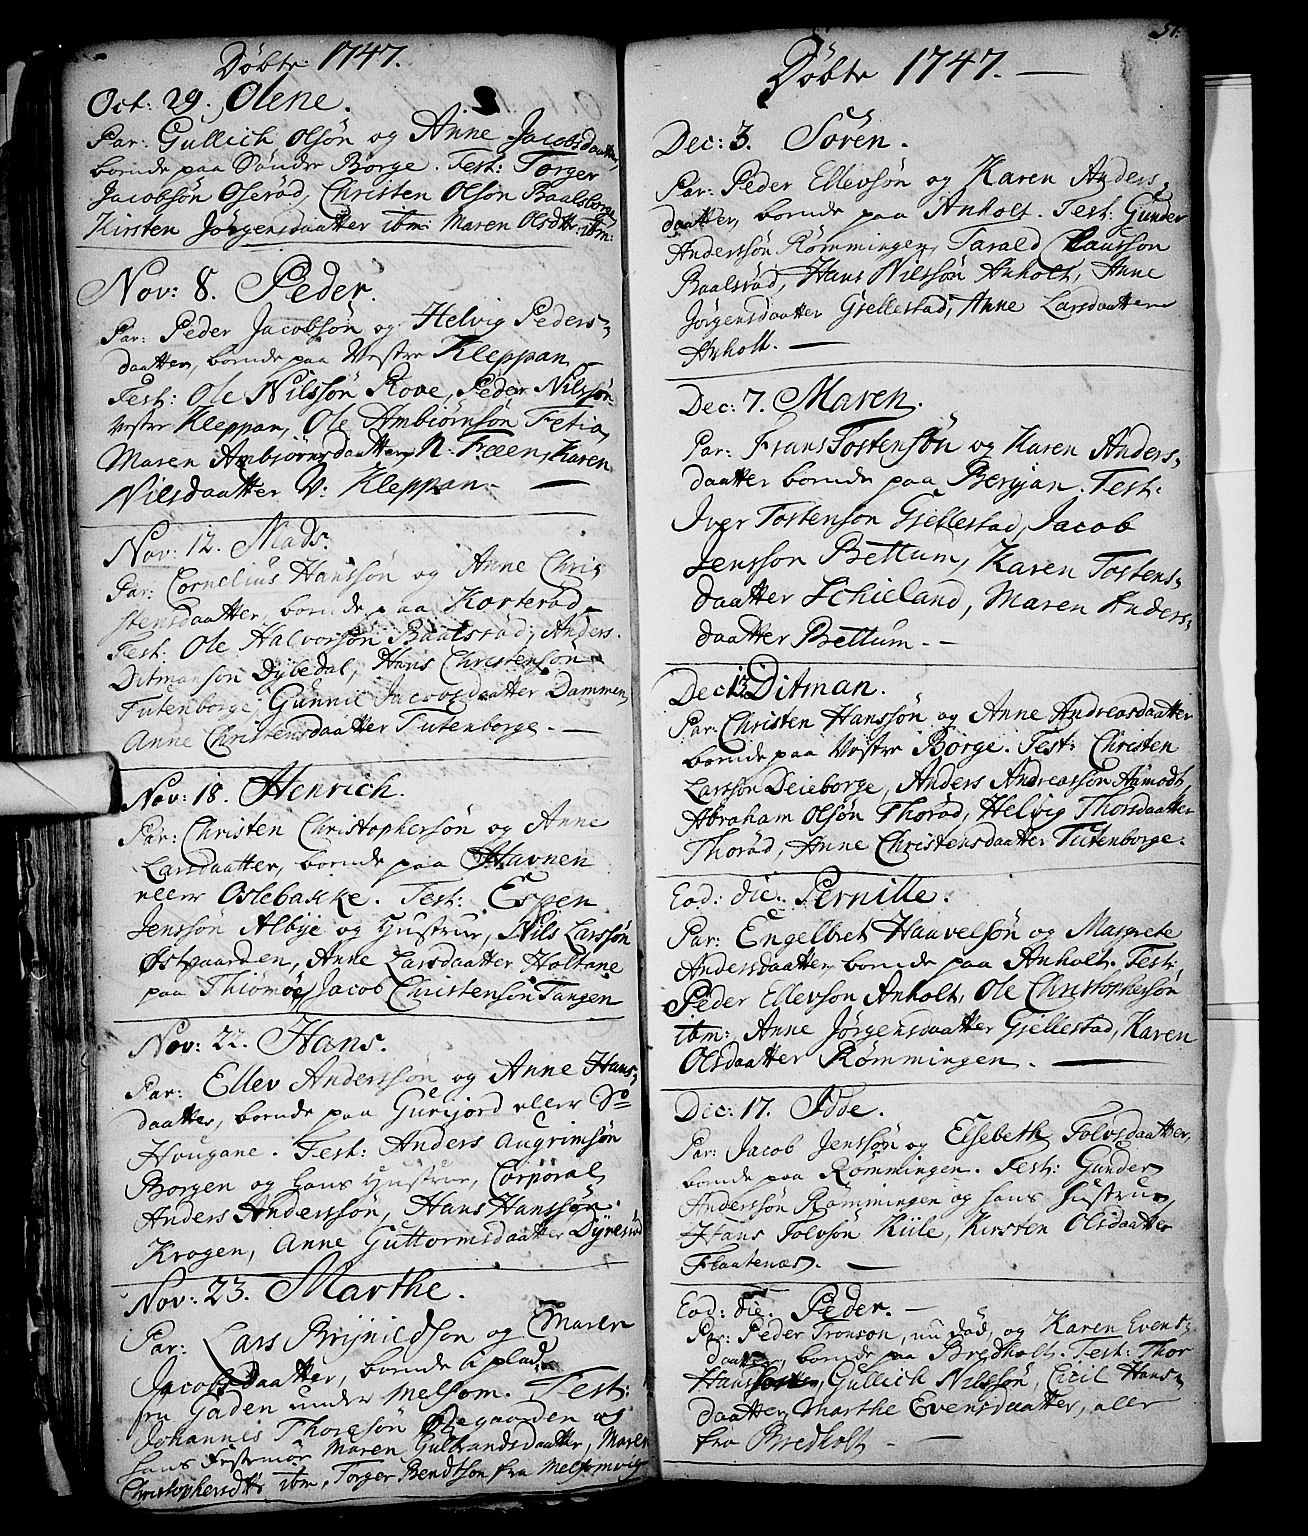 Döbte 1747.
Oct: 29. Olene.
Par: Gullich Olsön og Anne Jacobsdaatter,
boende paa Söndre Borge. Test: Torger
Jacobsön Oserød, Christen Olson Baalsborge,
Kirsten Jørgensdaatter ibm: Maren Olsdtr: ibm:
Nov: 8. Peder.
Par: Peder Jacobsön og Helvig Peders-
daatter, boende paa Vestre Kleppan
Test: Ole Nilssön Rove, Peder Nilssön
Vestre Kleppan, Ole Ambiörnsön Fetia,
Maren Ambjörnsdaatter N: Feen, Karen
Nilsdaatter V: Kleppan.
Nov: 12. Mads.
Par: Cornelius Hanssön og Anne Chri-
stensdaatter, boende paa Korterød
Test: Ole Halvorsön Baalsrød, Anders
Ditmanson Dybedal, Hans Christensön
Tutenborge, Gunnil Jacobsdaatter Dammen,
Anne Christensdaatter Tutenborge.
Nov: 18. Henrich.
Par: Christen Christophersön og Anne
Larsdaatter, boende paa Havnen
eller Oslebakke. Test: Espen
Jenssön Albye og Hustrue, Nils Larssön
Østgaarden, Anne Larsdaatter Holtane
paa Thiomöe, Jacob Christenson Tangen
Nov: 22. Hans.
Par: Ellev Anderssön og Anne Hans-
daatter, boende paa Gurijord eller So
Hougane. Test: Anders Augrimsön
Borgen og hans Hustrue, Corporal
Anders Anderssön, Hans Hanssön
Krogen, Anne Guttormsdaatter Dyresöe
Nov: 23. Marthe.
Par: Lars Brijnildson og Maren
Jacobsdaatter, boende i plad
fra Gaden under Melsom. Test:
Johannis Thoresön Øegaarden og
hans Festemøe Maren Gulbrandsdaatter, Maren
Christophersdtr ibm, Torger Bendtson fra Melsomvig
51.
Döbte 1747.
Dec: 3. Sören.
Par: Peder Ellevsön og Karen Anders-
daatter, boende paa Anholt. Test: Gunder
Anderssön Römmingen, Tarald Claussön
Baalsrød, Hans Nilssön Anholt, Anne
Jørgensdaatter Gjellestad, Anne Larsdaatter
Anholt.
Dec: 7. Maren.
Par: Frans Tostensön og Karen Anders-
daatter boende paa Bergan. Test:
Iver Tostenson Gjellestad, Jacob
Jensson Bettum, Karen Tostens-
daatter Schieland, Maren Anders-
daatter Bettum.
Dec: 13. Ditman.
Par: Christen Hanssön og Anne Andreasdaatter
boende paa Vestre Borge. Test: Christen
Larssön Deieborge, Anders Andreasson Aamodt,
Abraham Olsön Thorød, Helvig Thorsdaatter
Thorød, Anne Christensdaatter Tutenborge.
Eod: die. Pernille.
Par: Engelbret Haavelsön og Margrete
Andersdaatter boende paa Anholt. Test:
Peder Ellevson Anholt, Ole Christophersön
ibm: Anne Jørgensdaatter Gjellestad, Karen
Olsdaatter Römmingen.
Dec: 17. Idde.
Par: Jacob Jenssön og Elsebeth Tolvsdaatter,
boende paa Römmingen. Test: Gunder
Anderssön Römmingen og hans Hustrue,
Hans Tolvsön Kiile, Kirsten Olsdaatter
Flaatenæs.
Eod: die. Peder.
Par: Peder Tronson, nu død, og Karen Evens-
daatter, boende paa Bredholt. Test: Thor
Hanssön, Gullich Nilssön, Cicil Hans-
daatter Marthe Evensdaatter, alle
fra Bredholt